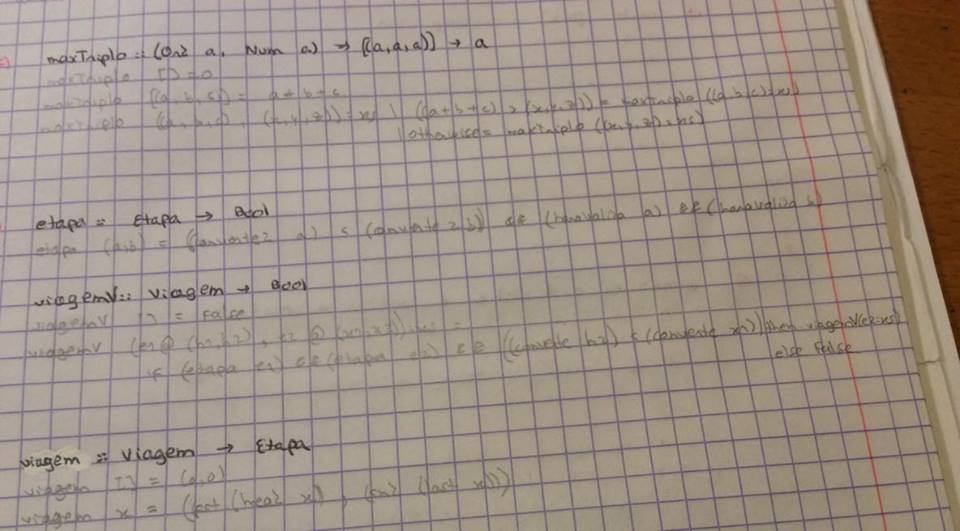 maxTriplo :: (Ord a, Num a) → [(a,a,a)] → a
maxTriplo [] = 0
maxTriplo [(a,b,c)] = a+b+c
maxTriplo ((a,b,c):(x,y,z):xs) | ((a+b+c) > (x+y+z)) = maxTriplo ((a,b,c):xs)
| otherwise = maxTriplo ((x,y,z):xs)
etapa :: Etapa → Bool
etapa (a,b) = (converte2 a) < (converte2 b) && (horavalida a) && (horavalida b)
viagemV :: Viagem → Bool
viagemV [] = False
viagemV (e1@(h1,h2):e2@(x1,x2):xs) =
if (etapa e1) && (etapa e2) && ((converte h2) < (converte x1)) then viagemV(e2:xs)
else False
viagem :: Viagem → Etapa
viagem [] = (0,0)
viagem x = (fst (head x), (snd (last x)))